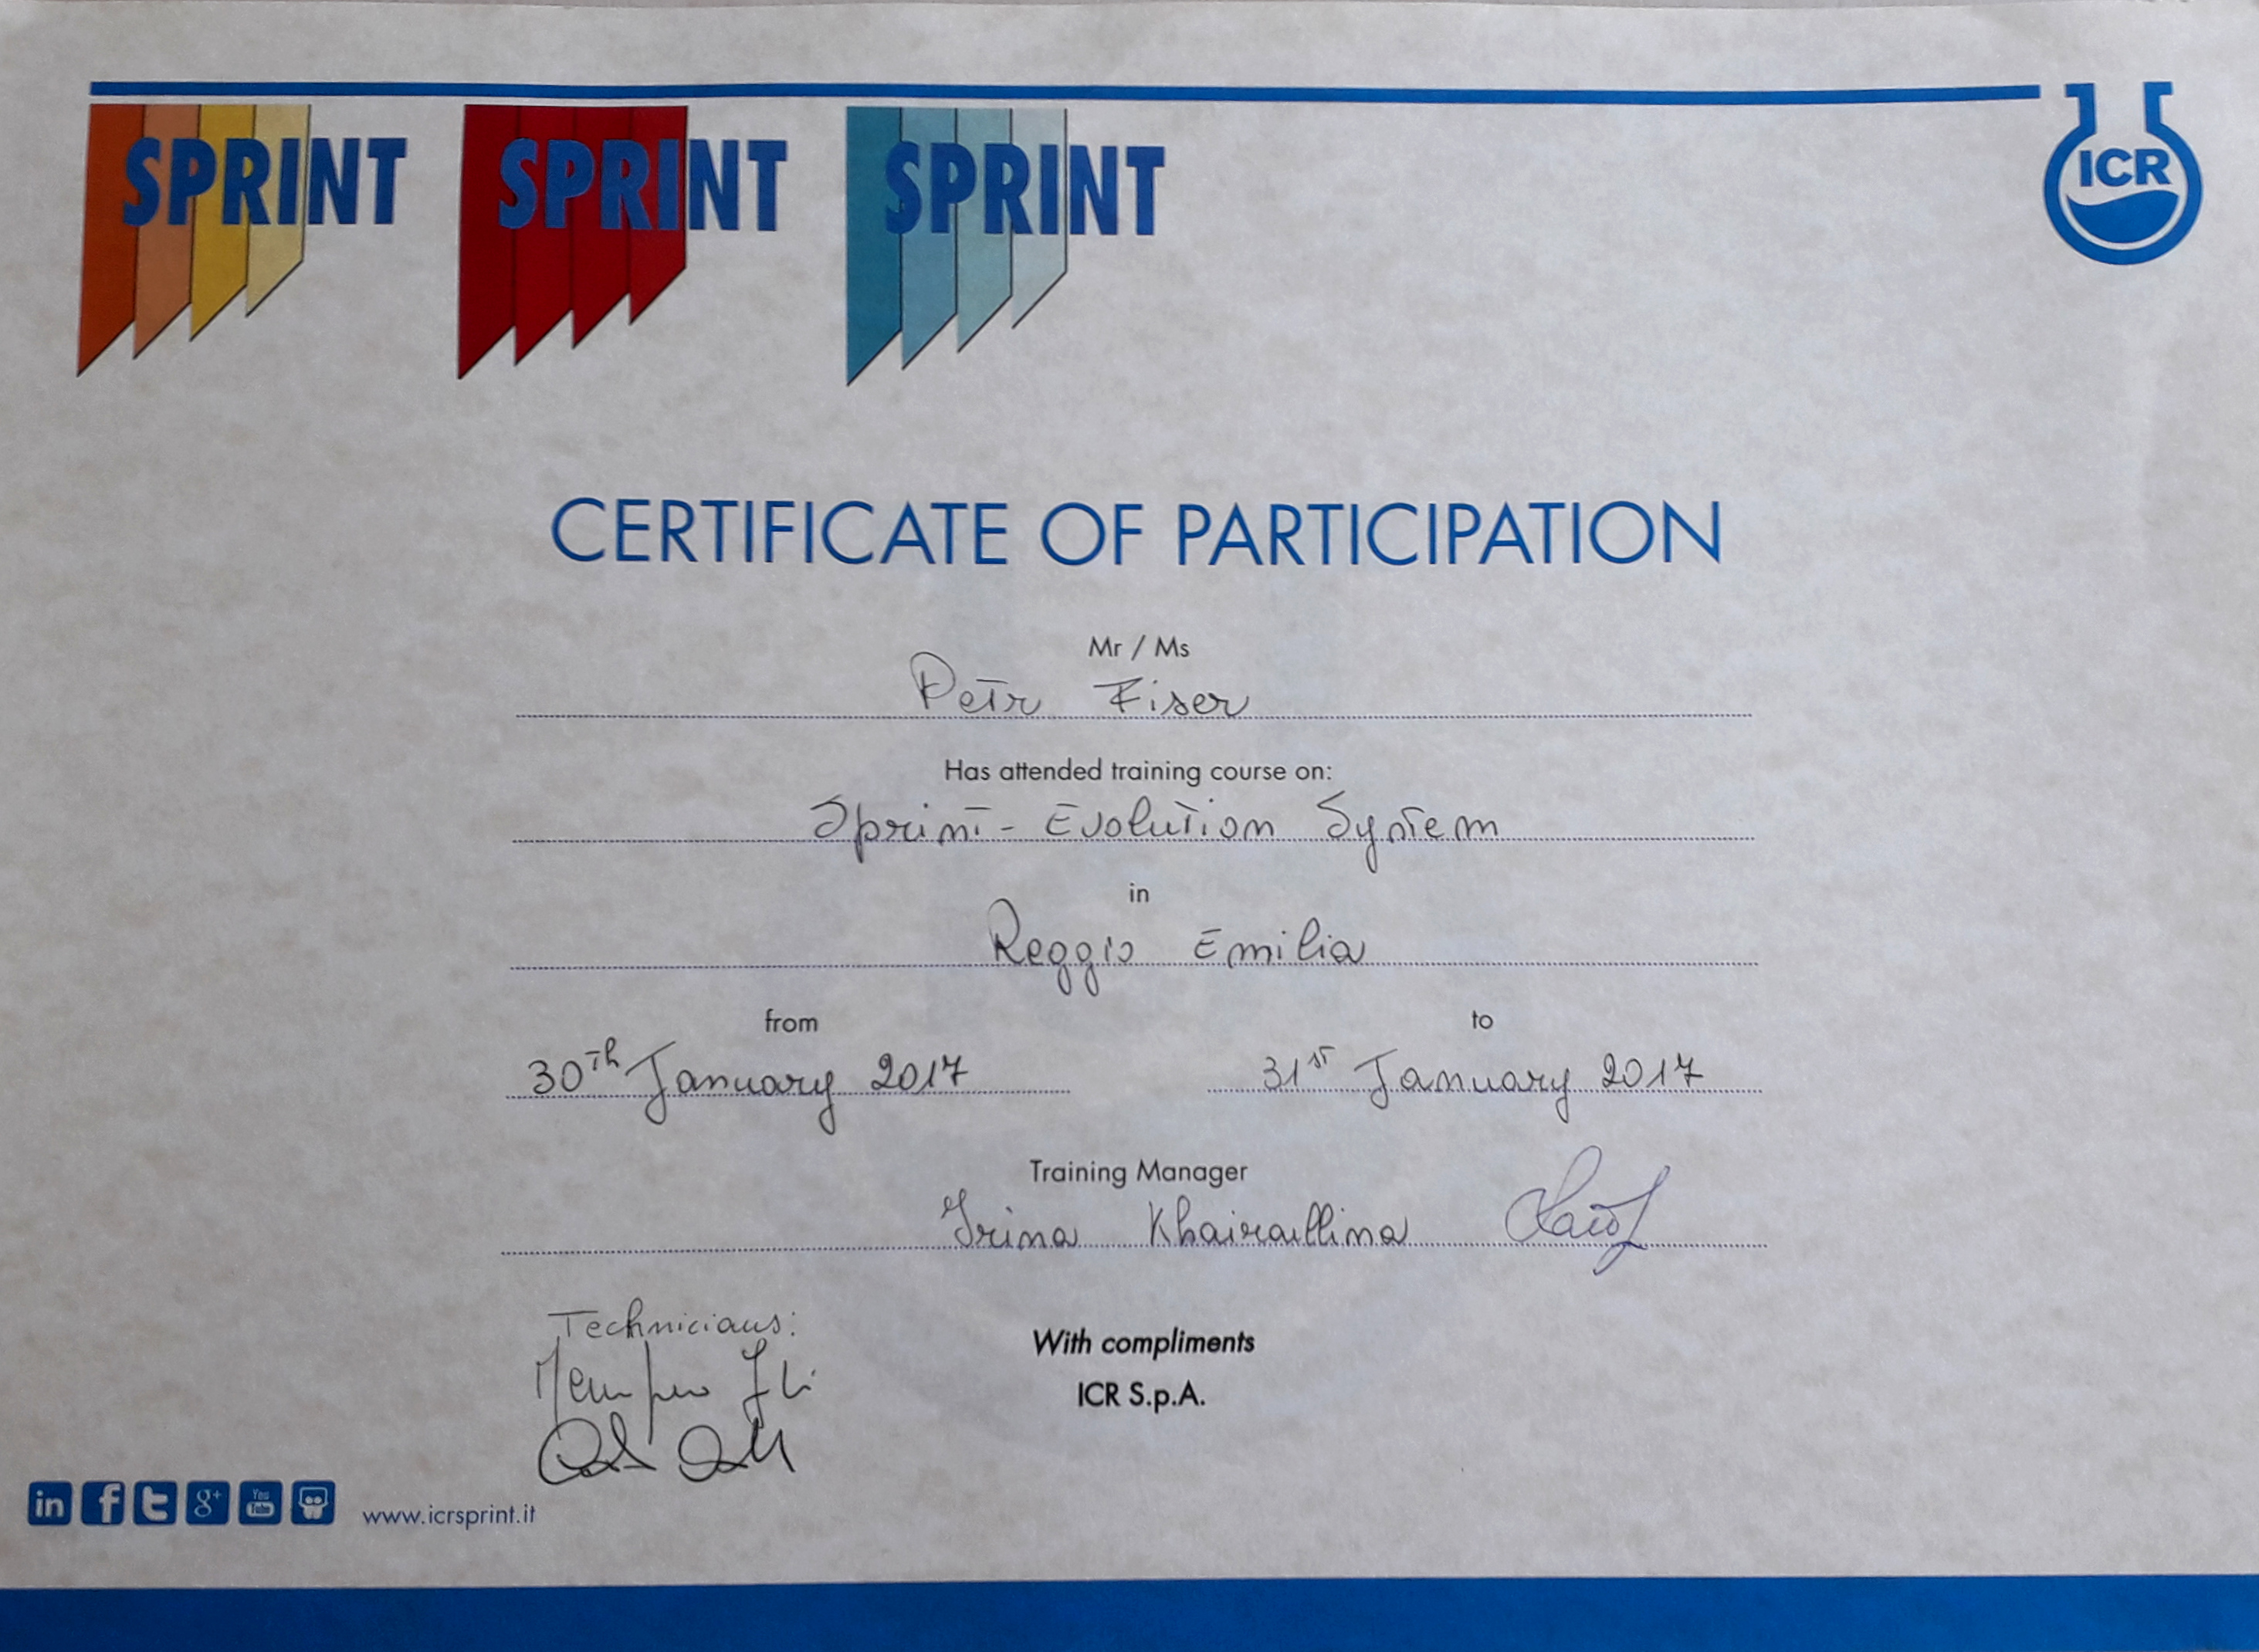 SPRINT SPRINT SPRINT
ICR
CERTIFICATE OF PARTICIPATION
Mr / Ms
Petr Fiser
Has attended training course on:
Sprint - Evolution System
in
Reggio Emilia
from to
30th January 2017 31st January 2017
Training Manager
Irina
Technicians:
With compliments
ICR S.p.A.
in f t g+ You Tube
www.icrsprint.it